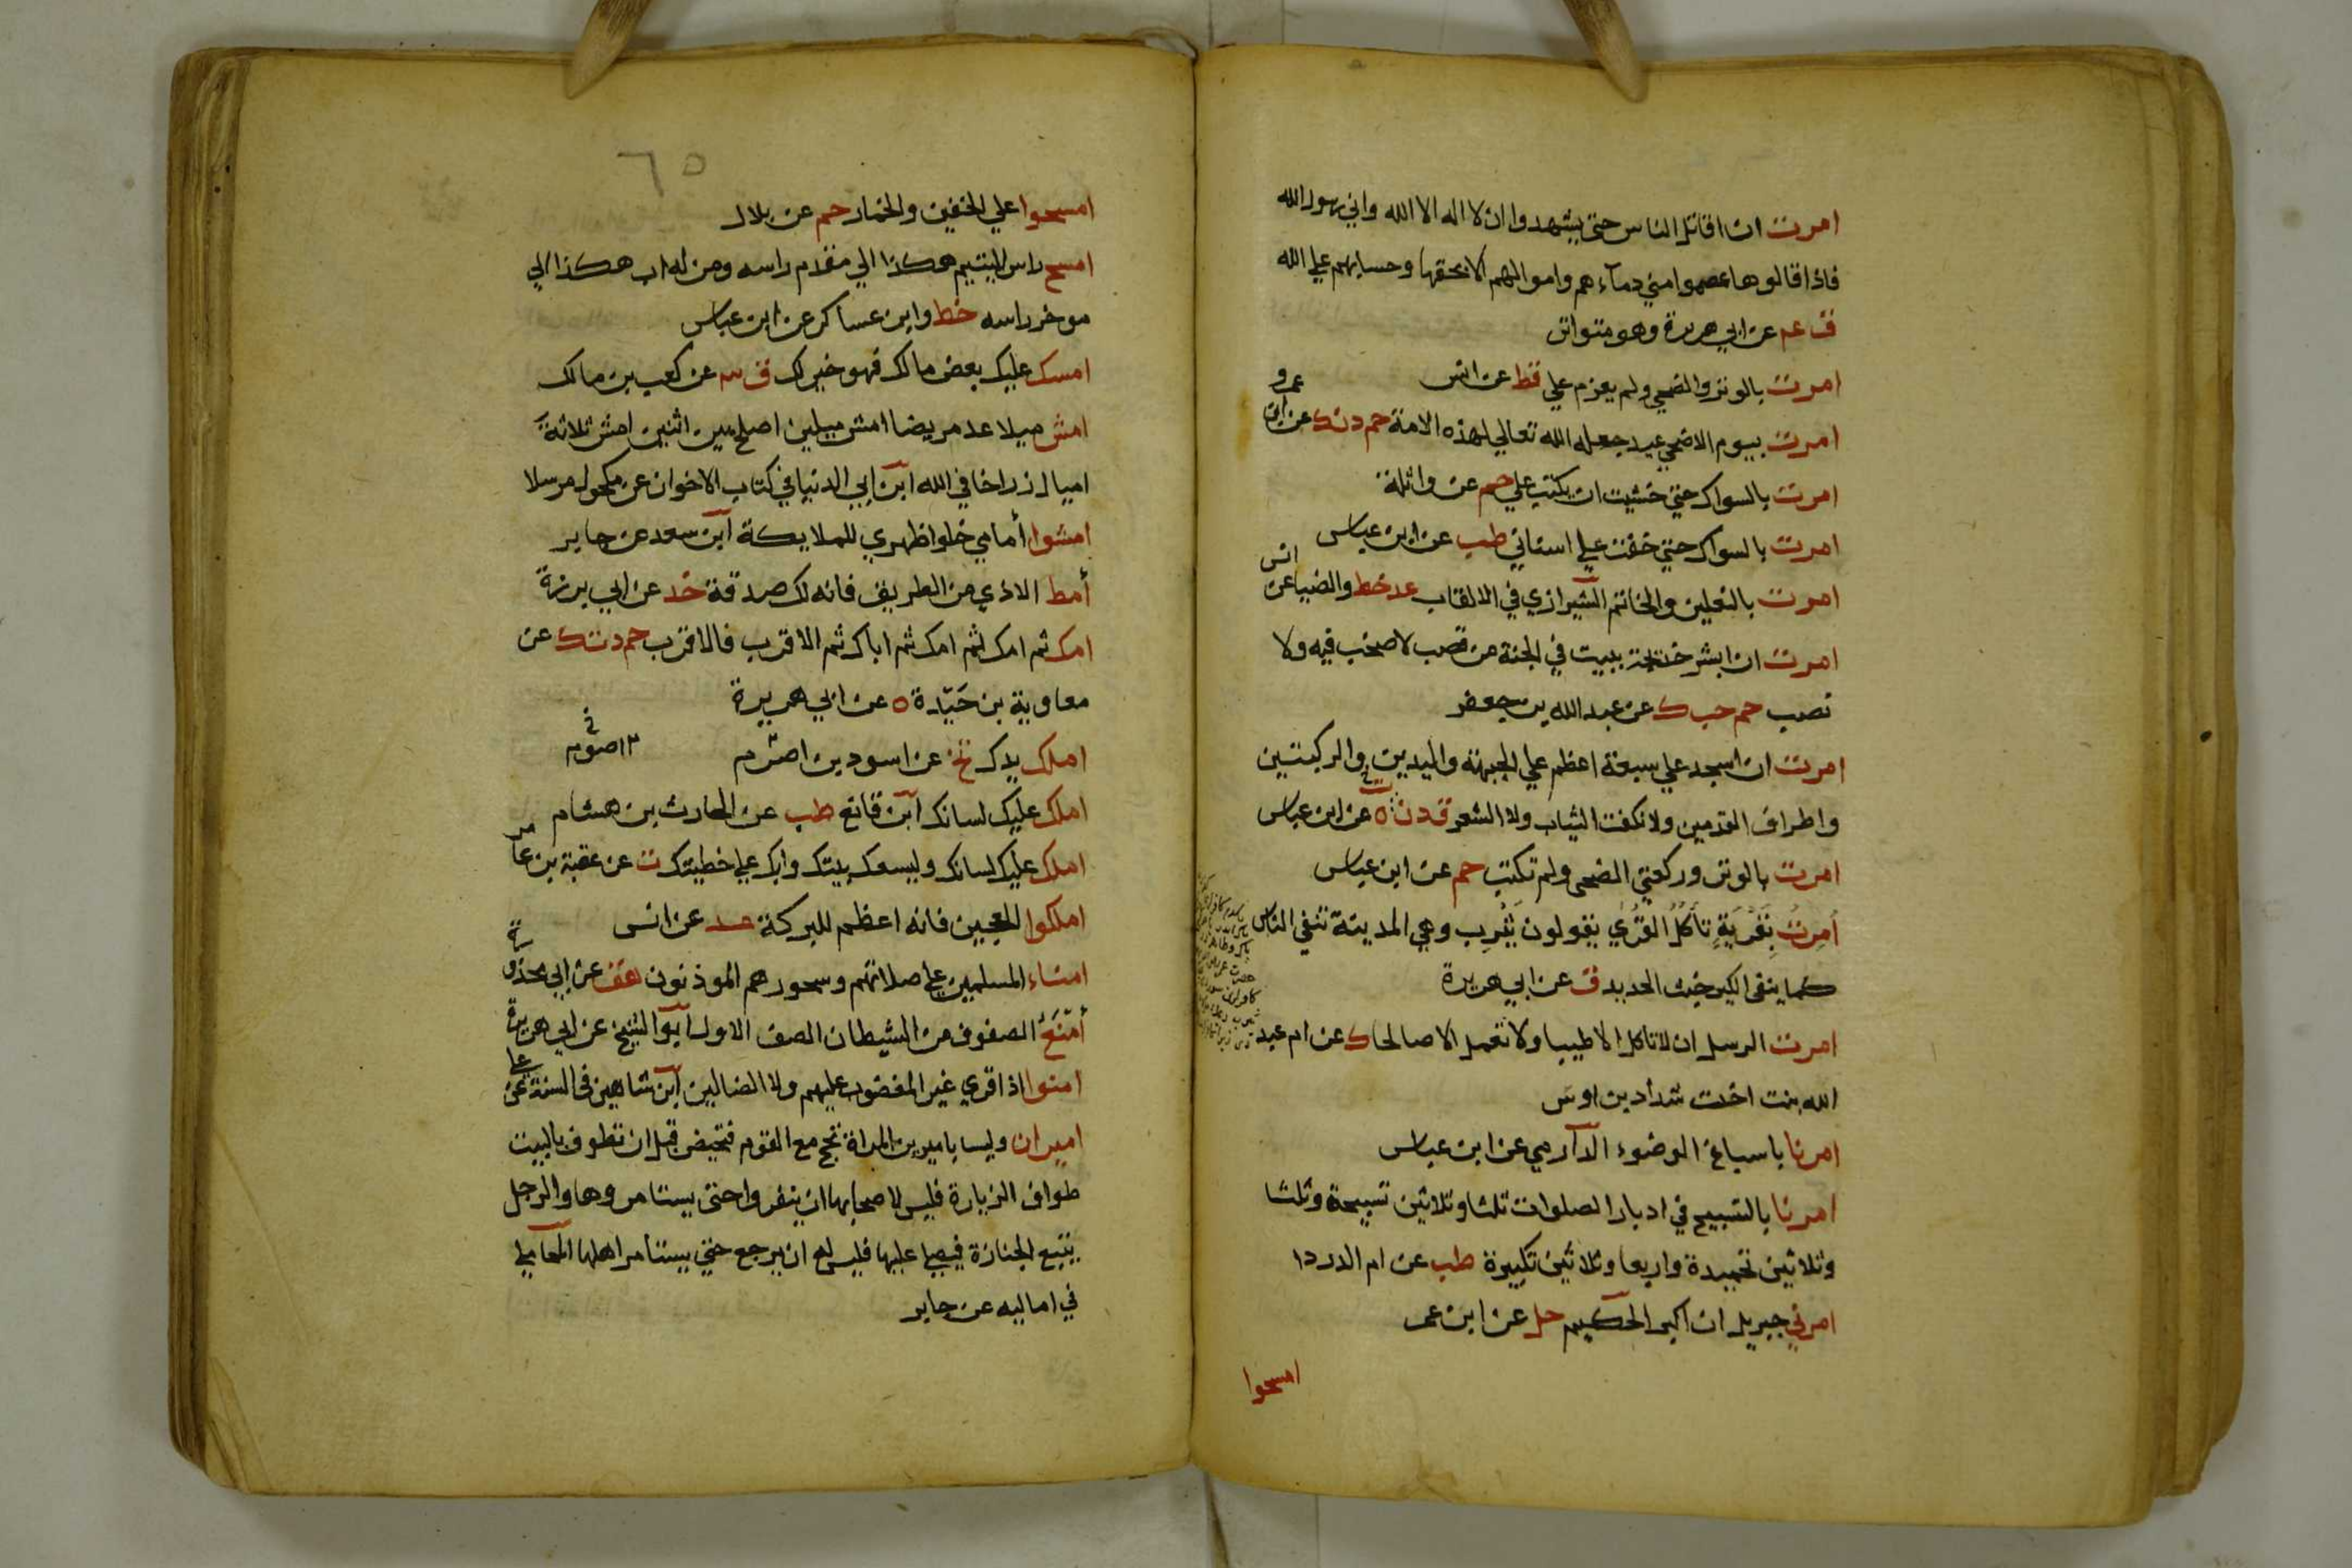 امرت ان اقاتل الناس حتى يشهدوا ان لا اله الا الله واني رسول الله
فاذا قالوها عصموا مني دماءهم واموالهم الا بحقها وحسابهم علي الله
ق عم عن ابي هريرة وهو متواتر
امرت بالوتر والضحي ولم يعزم علي قط عن انس
امرت بيوم الاضحي عيد جعله الله تعالي لهذه الامة حم د ن ك عن ابن
عمرو
امرت بالسواك حتي خشيت ان يكتب علي حم عن واثلة
امرت بالسواك حتي خفت علي اسناني طب عن ابن عباس
امرت بالنعلين والخاتم الشيرازي في الالقاب عد خط والضيا عن
انس
امرت ان ابشر خديجة ببيت في الجنة من قصب لا صخب فيه ولا
نصب حم حب ك عن عبد الله بن جعفر
امرت ان اسجد علي سبعة اعظم علي الجبهة واليدين والركبتين
واطراف القدمين ولا نكفت الثياب ولا الشعر ق د ن ه عن ابن عباس
امرت بالوتر وركعتي الضحى ولم تكتب حم عن ابن عباس
اُمِرتُ بِقَرْيَةٍ تأكُلُ القُرَي يقولون يَثْرِب وهي المدينة تنفي الناس
كما ينفي الكير خبث الحديد ق عن ابي هريرة
امرت الرسل ان لا تاكل الا طيبا ولا تعمل الا صالحا ك عن ام عبد
الله بنت اخت شداد بن اوس
امرنا باسباغ الوضوء الدارمي عن ابن عباس
امرنا بالتسبيح في ادبار الصلوات ثلثا وثلاثين تسبيحة وثلثا
وثلاثين تحميدة واربعا وثلاثين تكبيرة طب عن ام الدردا
امرني جبريل ان اكبر الحكيم حل عن ابن عمر
امسحوا
٦٥
امسحوا علي الخفين والخمار حم عن بلال
امسح راس اليتيم هكذا الي مقدم راسه ومن له اب هكذا الي
موخر راسه خط وابن عساكر عن ابن عباس
امسك عليك بعض مالك فهو خير لك ق عن كعب بن مالك
امش ميلا عد مريضا امش ميلين اصلح بين اثنين امش ثلاثة
اميال زر اخا في الله ابن ابي الدنيا في كتاب الاخوان عن مكحول مرسلا
امشوا أمامي خلوا ظهري للملايكة ابن سعد عن جابر
أمط الاذي عن الطريق فانه لك صدقة خد عن ابي برزة
امك ثم امك ثم امك ثم اباك ثم الاقرب فالاقرب حم د ت ك عن
معاوية بن حَيْدة ه عن ابي هريرة
املك يدك تخ عن اسود بن اصرم
املك عليك لسانك ابن قانع طب عن الحارث بن هشام
املك عليك لسانك وليسعك بيتك وابك علي خطيتك ت عن عقبة بن عا
مر
املكوا العجين فانه اعظم للبركة عد عن انس
امناء المسلمين علي صلاتهم وسحورهم الموذنون هق عن ابي محذو
رة
أمْنَعُ الصفوف من الشيطان الصف الاول ابو الشيخ عن ابي هريرة
امنوا اذا قري غير المغضوب عليهم ولا الضالين ابن شاهين في السنة عن
علي
اميران وليسا باميرين المراة تحج مع القوم فتحيض قبل ان تطوف بالبيت
طواف الزيارة فليس لاصحابها ان ينفروا حتى يستامروها والرجل
يتبع الجنازة فيصلي عليها فليس له ان يرجع حتي يستامر اهلها المحاملي
في اماليه عن جابر